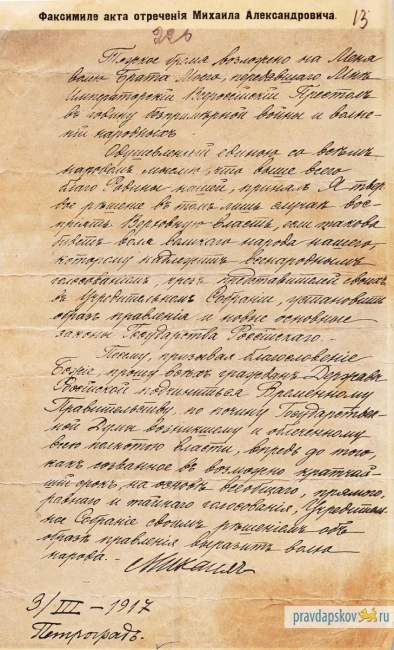 Факсимиле акта отреченія Михаила Александровича.
13
220
Тяжкое бремя возложено на Меня
волею Брата Моего, передавшаго Мнѣ
Императорскій Всероссійскій Престолъ
въ годину безпримѣрной войны и волне-
ній народныхъ.
Одушевленный единою со всѣмъ
народомъ мыслію, что выше всего
благо Родины нашей, принялъ Я твер-
дое рѣшеніе въ томъ лишь случаѣ вос-
пріять Верховную власть, если такова
будетъ воля великаго народа нашего,
которому надлежитъ всенароднымъ
голосованіемъ, чрезъ представителей своихъ
въ Учредительномъ Собраніи, установить
образъ правленія и новые основные
законы Государства Россійскаго.
Посему, призывая благословеніе
Божіе, прошу всѣхъ гражданъ Державы
Россійской подчиниться Временному
Правительству, по почину Государствен-
ной Думы возникшему и облеченному
всею полнотою власти, впредь до того,
какъ созванное въ возможно кратчай-
шій срокъ, на основѣ всеобщаго, прямого,
равнаго и тайнаго голосованія, Учредитель-
ное Собраніе своимъ рѣшеніемъ объ
образѣ правленія выразитъ волю
народа.
Михаилъ
3/III – 1917
Петроградъ.
pravdapskov.ru